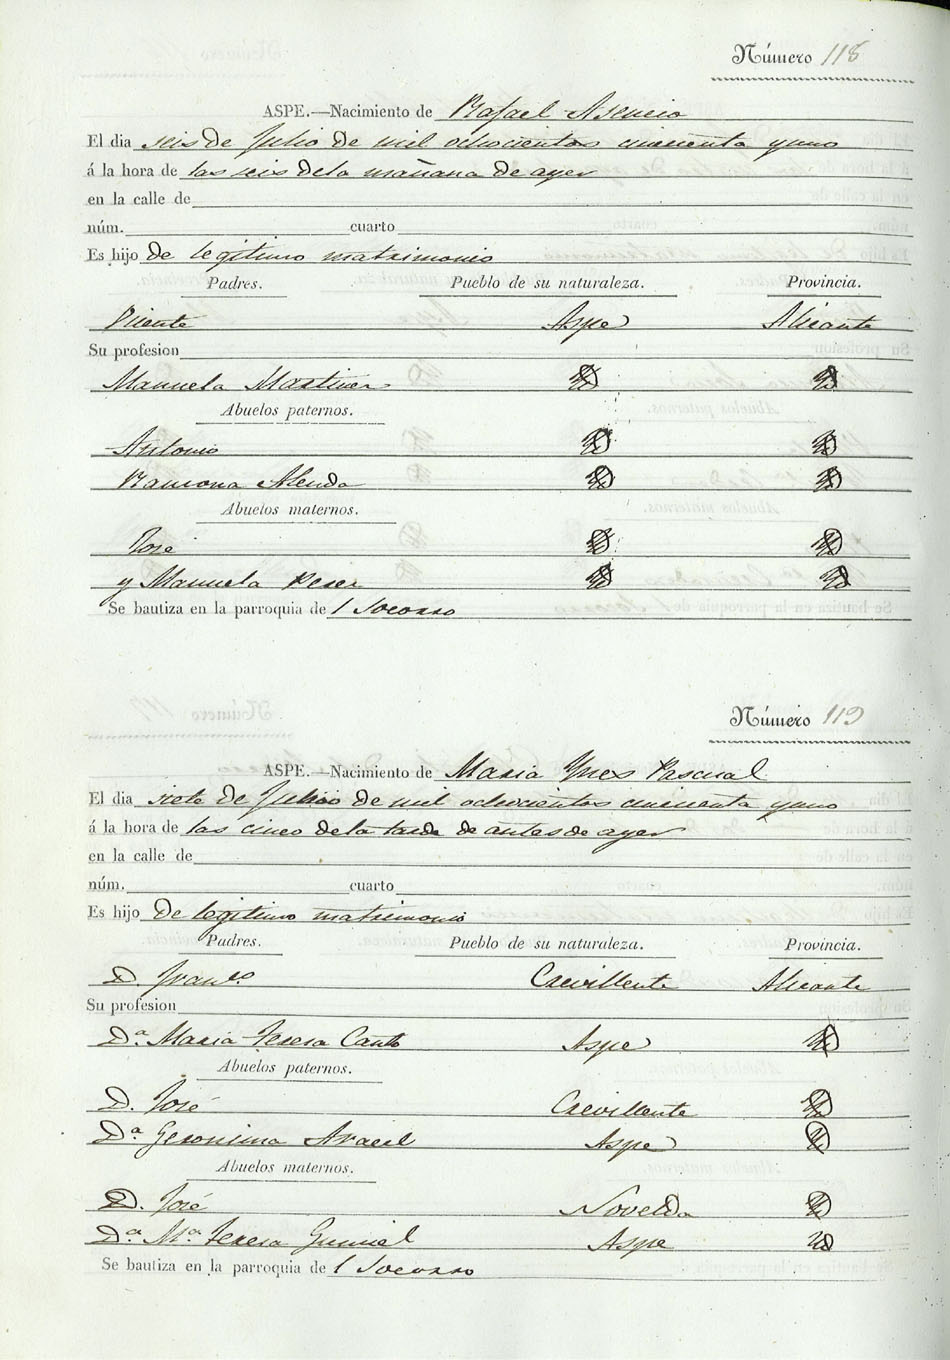 Número 118
ASPE.—Nacimiento de Rafael Asencio
El dia seis de Julio de mil ochocientos cincuenta y uno
á la hora de las seis de la mañana de ayer
en la calle de
núm. cuarto
Es hijo de legitimo matrimonio
Padres. Pueblo de su naturaleza. Provincia.
Vicente Aspe Alicante
Su profesion
Manuela Martinez Yd Yd
Abuelos paternos.
Antonio Yd Yd
Ramona Alenda Yd Yd
Abuelos maternos.
José Yd Yd
y Manuela Perez Yd Yd
Se bautiza en la parroquia del Socorro
Número 119
ASPE.—Nacimiento de Maria Ynes Pascual
El dia siete de Julio de mil ochocientos cincuenta y uno
á la hora de las cinco de la tarde de antes de ayer
en la calle de
núm. cuarto
Es hijo de legitimo matrimonio
Padres. Pueblo de su naturaleza. Provincia.
D. Franco Crevillente Alicante
Su profesion
Da. Maria Teresa Cantó Aspe Yd
Abuelos paternos.
D. José Crevillente Yd
Da Geronima Aracil Aspe Yd
Abuelos maternos.
D. José Novelda Yd
Da Ma Teresa Gumiel Aspe Yd
Se bautiza en la parroquia del Socorro